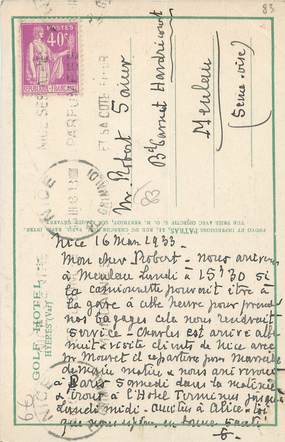 83
POSTES
40c
REPUBLIQUE FRANÇAISE
NICE SES
PARFUMS
ET SA COTE D'AZUR
NICE
GRIMALDI
Mr Robert Sauer
Bd Carnet Hardricourt
Meulan
(Seine-oise)
83
PHOTO ET IMPRESSIONS PATRAS
GOLF HOTEL
HYÈRES (Var)
66
Nice 16 Mars 1933.
Mon cher Robert - nous arrivons
à Meulan Lundi à 15h30 si
la camionnette pouvait être à
la gare à cette heure pour prendre
nos bagages cela nous rendrait
service - Charles est arrivé
visite clients de Nice avec
Mr Mouret il repartira pour Marseille
et nous arrivons
à Paris Samedi dans la matinée
à l'Hotel Terminus jusqu'à
Lundi midi. Alice.
que nous en bonne Santé